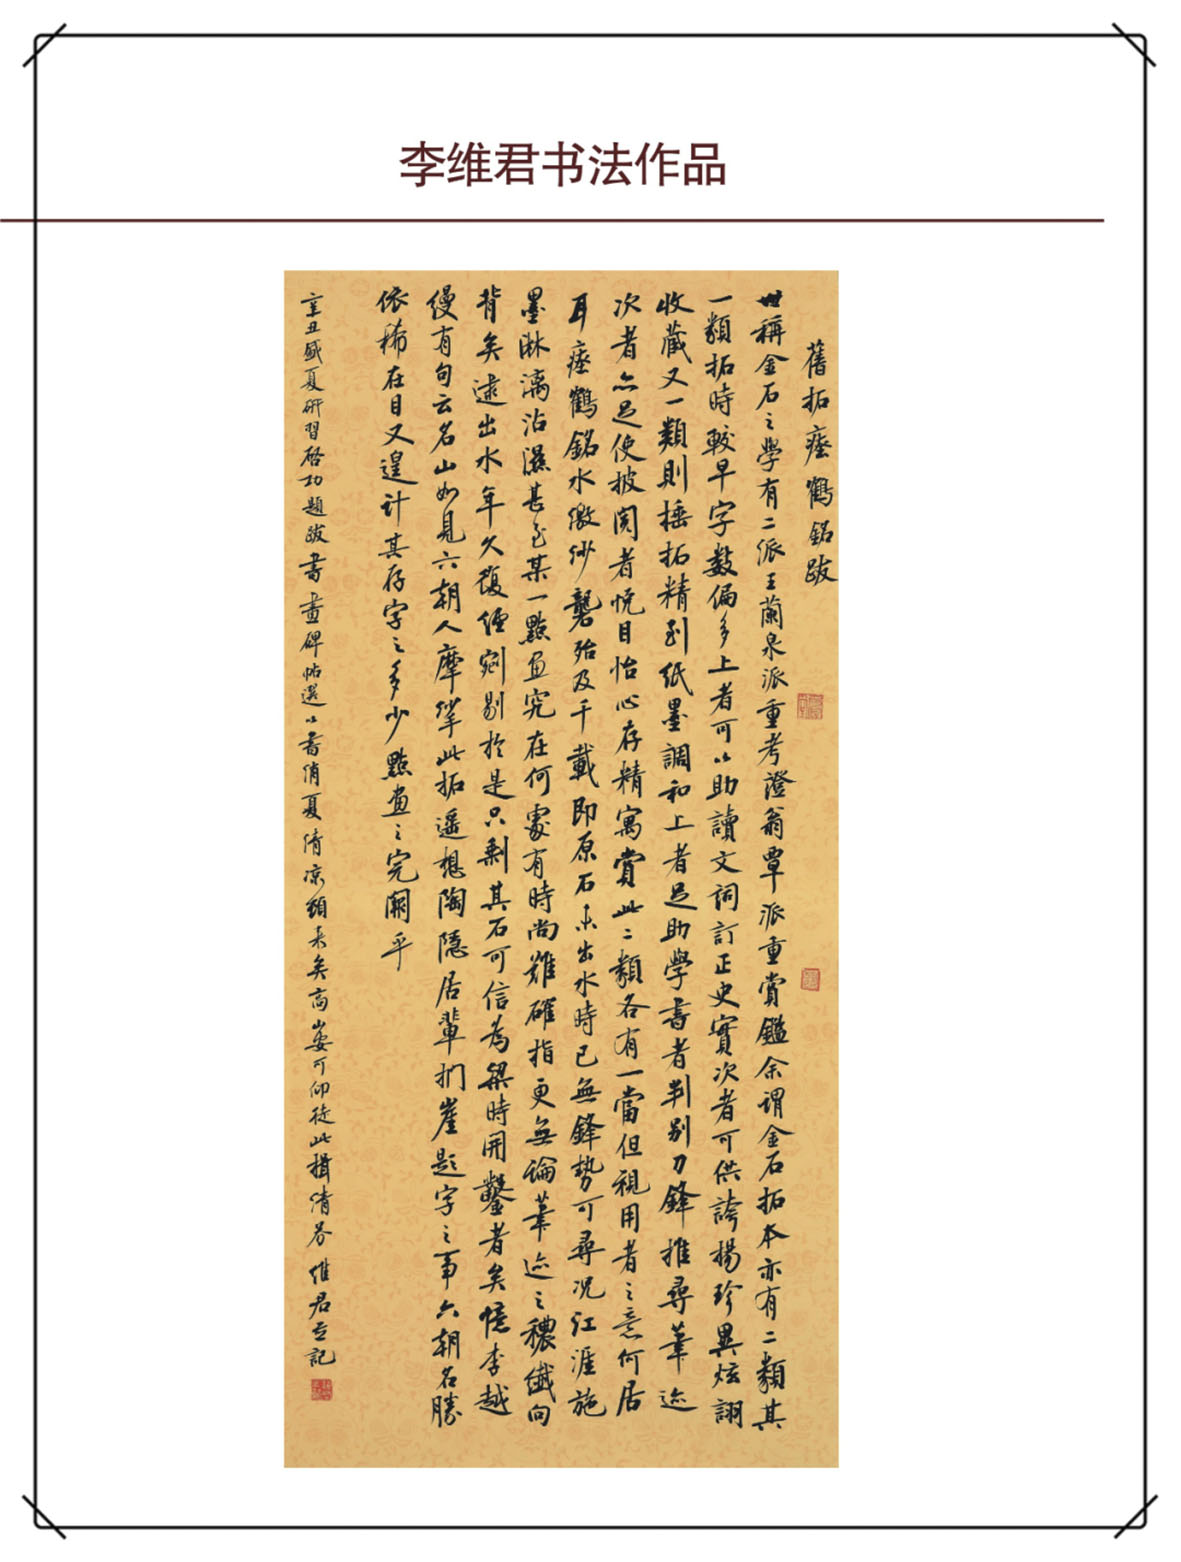 李维君书法作品
舊拓瘞鶴銘跋
世稱金石之學有二派王蘭泉派重考證翁覃派重賞鑑余謂金石拓本亦有二類其
一類拓時較早字數偏多上者可以助讀文詞訂正史實次者可供誇揚珍異炫詡
收藏又一類則捶拓精到紙墨調和上者足助學書者判别刀鋒推尋筆迹
次者亦足使披閲者悦目怡心存精寓賞此二類各有一當但視用者之意何居
耳瘞鶴銘水激沙礱殆及千載即原石未出水時已無鋒勢可尋况江涯施
墨淋漓沾濕甚至某一點畫究在何處有時尚難確指更無論筆迹之穠纖向
背矣逮出水年久復經剜剔於是只剩其石可信為梁時開鑿者矣憶李越
縵有句云名山如見六朝人摩挲此拓遥想陶隱居輩捫崖題字之事六朝名勝
依稀在目又遑計其存字之多少點畫之完闕乎
辛丑盛夏研習啓功題跋書畫碑帖選以書消夏清凉頓来矣高山可仰徒此揖清芬維君並記